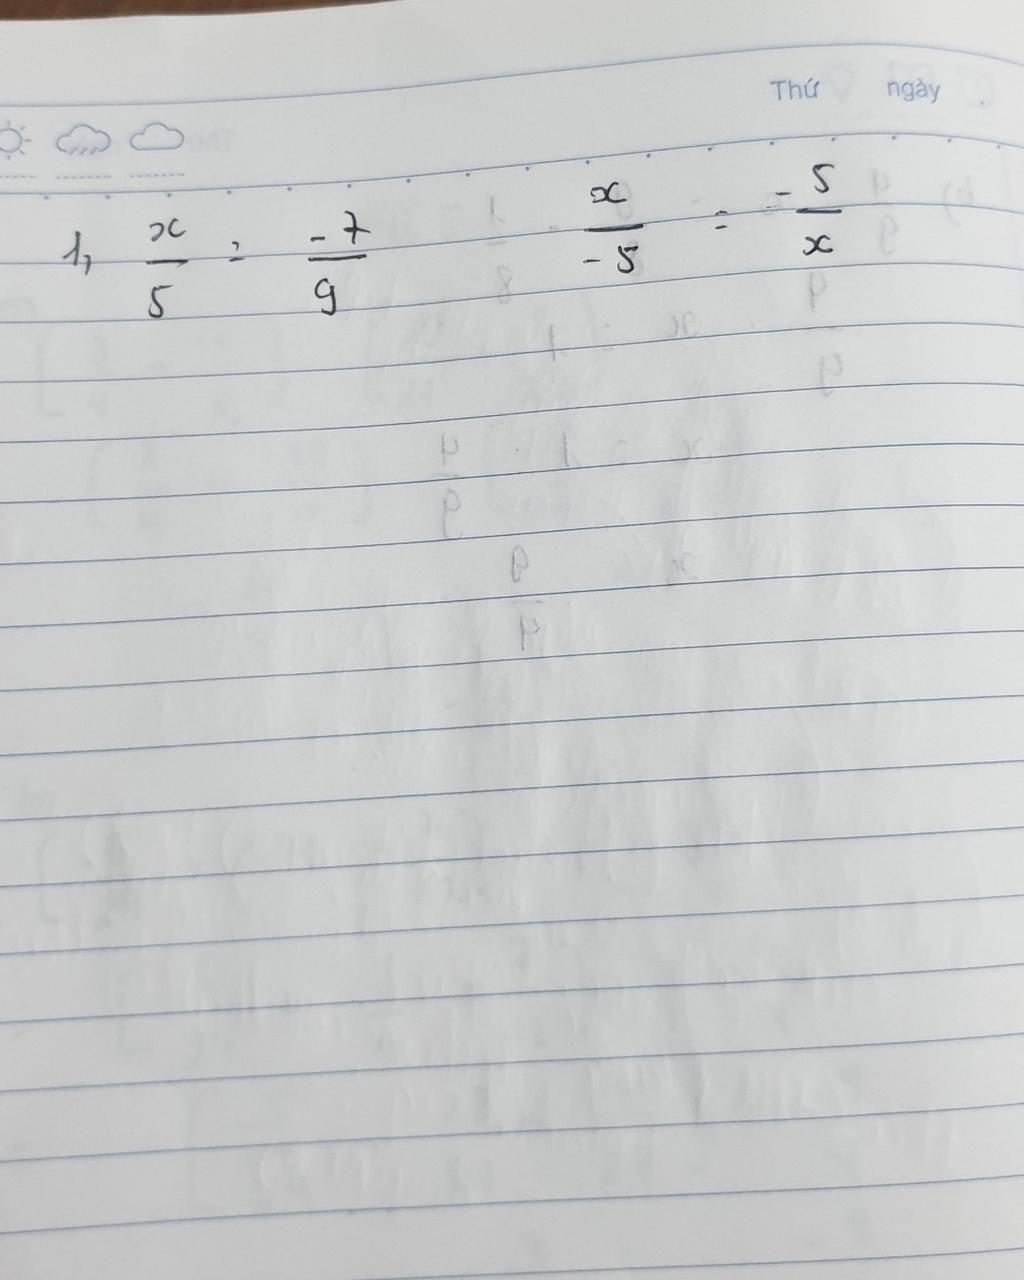 Thứ ngày
1, x/5 = -7/9 x/-5 = -5/x